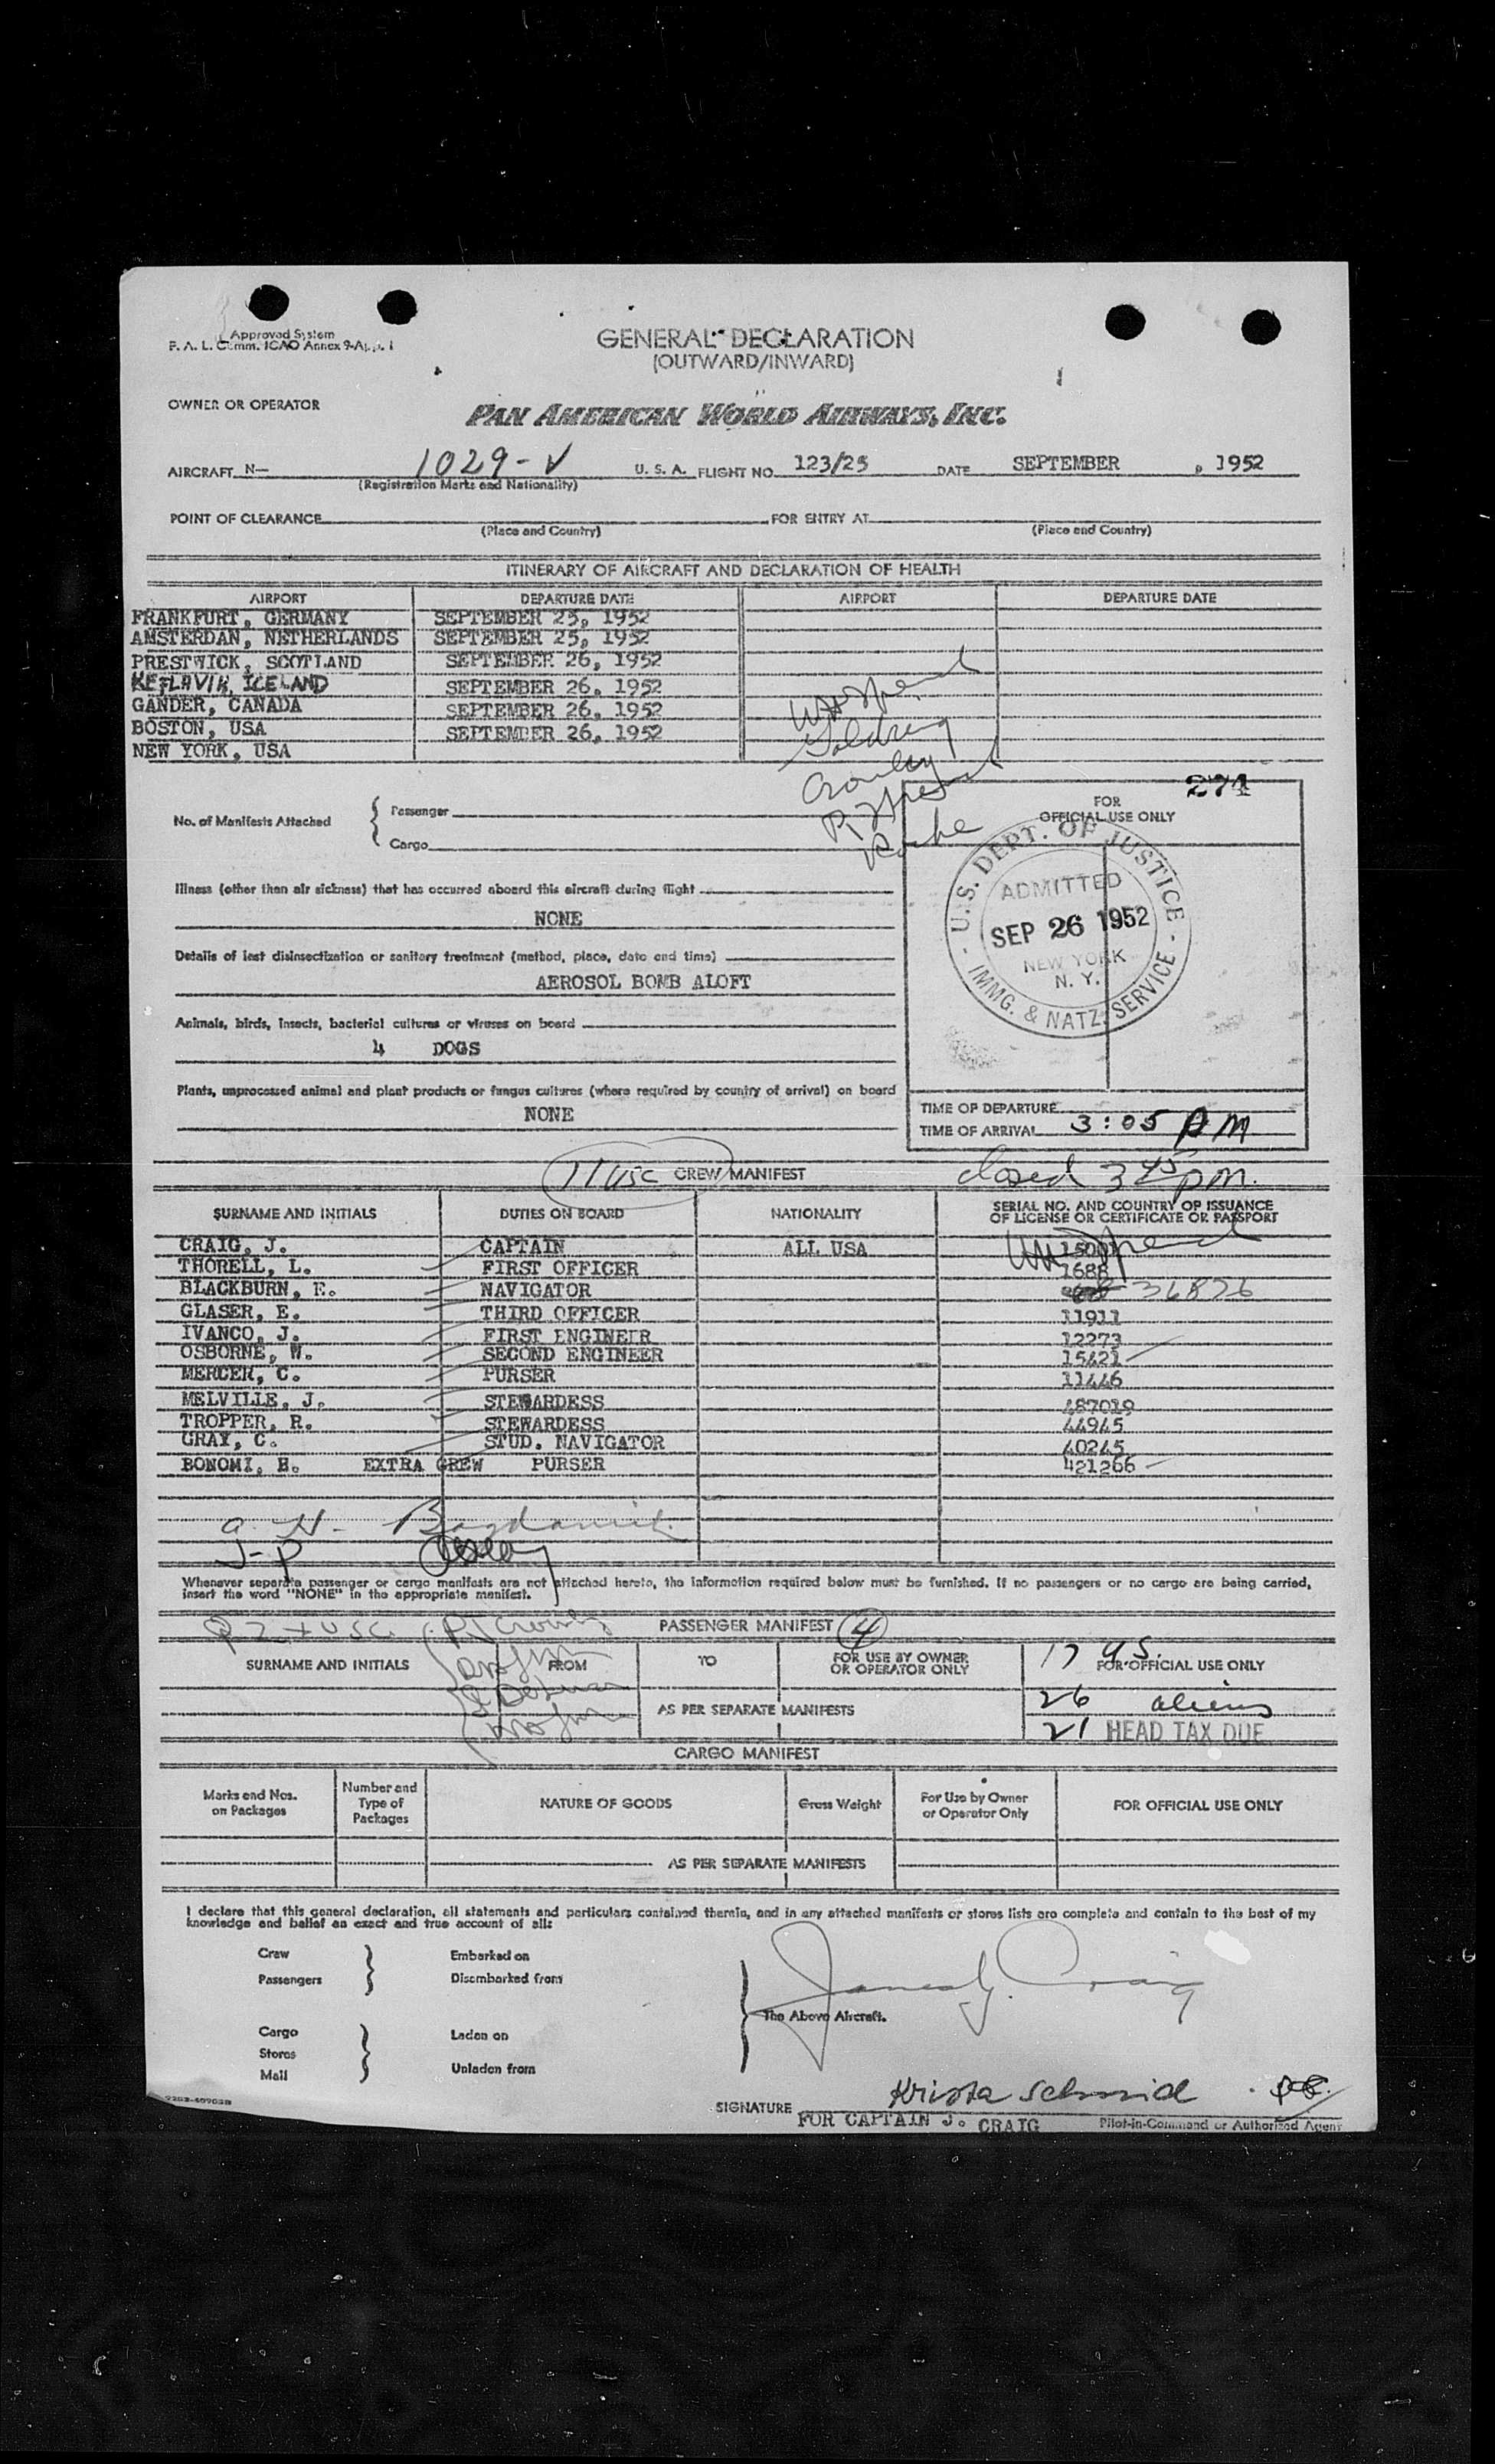 Approved System
F. A. L. Comm. ICAO Annex 9-App. 1
GENERAL DECLARATION
(OUTWARD/INWARD)
OWNER OR OPERATOR
PAN AMERICAN WORLD AIRWAYS, INC.
AIRCRAFT N— 1029-V U. S. A. FLIGHT NO. 123/25 DATE SEPTEMBER , 1952
(Registration Marks and Nationality)
POINT OF CLEARANCE FOR ENTRY AT
(Place and Country) (Place and Country)
ITINERARY OF AIRCRAFT AND DECLARATION OF HEALTH
AIRPORT DEPARTURE DATE AIRPORT DEPARTURE DATE
FRANKFURT, GERMANY SEPTEMBER 25, 1952
AMSTERDAN, NETHERLANDS SEPTEMBER 25, 1952
PRESTWICK, SCOTLAND SEPTEMBER 26, 1952
KEFLAVIK, ICELAND SEPTEMBER 26, 1952
GANDER, CANADA SEPTEMBER 26, 1952
BOSTON, USA SEPTEMBER 26, 1952
NEW YORK, USA
Goldring
Crowley
Roche
274
No. of Manifests Attached
Passenger
Cargo
FOR
OFFICIAL USE ONLY
U.S. DEPT. OF JUSTICE
ADMITTED
SEP 26 1952
NEW YORK
N. Y.
IMMG. & NATZ. SERVICE
Illness (other than air sickness) that has occurred aboard this aircraft during flight
NONE
Details of last disinsectization or sanitary treatment (method, place, date and time)
AEROSOL BOMB ALOFT
Animals, birds, insects, bacterial cultures or viruses on board
4 DOGS
Plants, unprocessed animal and plant products or fungus cultures (where required by country of arrival) on board
NONE
TIME OF DEPARTURE
TIME OF ARRIVAL 3:05 PM
11 USC CREW MANIFEST closed 3 45 pm.
SURNAME AND INITIALS DUTIES ON BOARD NATIONALITY SERIAL NO. AND COUNTRY OF ISSUANCE
OF LICENSE OR CERTIFICATE OR PASSPORT
CRAIG, J. CAPTAIN ALL USA
THORELL, L. FIRST OFFICER 1688
BLACKBURN, F. NAVIGATOR 36826
GLASER, E. THIRD OFFICER 11911
IVANCO, J. FIRST ENGINEER 12273
OSBORNE, W. SECOND ENGINEER 15421
MERCER, C. PURSER 11446
MELVILLE, J. STEWARDESS 487019
TROPPER, R. STEWARDESS 44945
GRAY, C. STUD. NAVIGATOR 40245
BONOMI, H. EXTRA CREW PURSER 421266
J-P
Whenever separate passenger or cargo manifests are not attached hereto, the information required below must be furnished. If no passengers or no cargo are being carried,
insert the word "NONE" in the appropriate manifest.
PASSENGER MANIFEST 4
SURNAME AND INITIALS FROM TO FOR USE BY OWNER
OR OPERATOR ONLY
17 US.
FOR OFFICIAL USE ONLY
26 aliens
AS PER SEPARATE MANIFESTS
21 HEAD TAX DUE
CARGO MANIFEST
Marks and Nos.
on Packages
Number and
Type of
Packages
NATURE OF GOODS
Gross Weight
For Use by Owner
or Operator Only
FOR OFFICIAL USE ONLY
AS PER SEPARATE MANIFESTS
I declare that this general declaration, all statements and particulars contained therein, and in any attached manifests or stores lists are complete and contain to the best of my
knowledge and belief an exact and true account of all:
Crew
Passengers
Embarked on
Disembarked from
Cargo
Stores
Mail
Laden on
Unladen from
The Above Aircraft.
James J. Craig
SIGNATURE Krista Schmid
FOR CAPTAIN J. CRAIG Pilot-in-Command or Authorized Agent